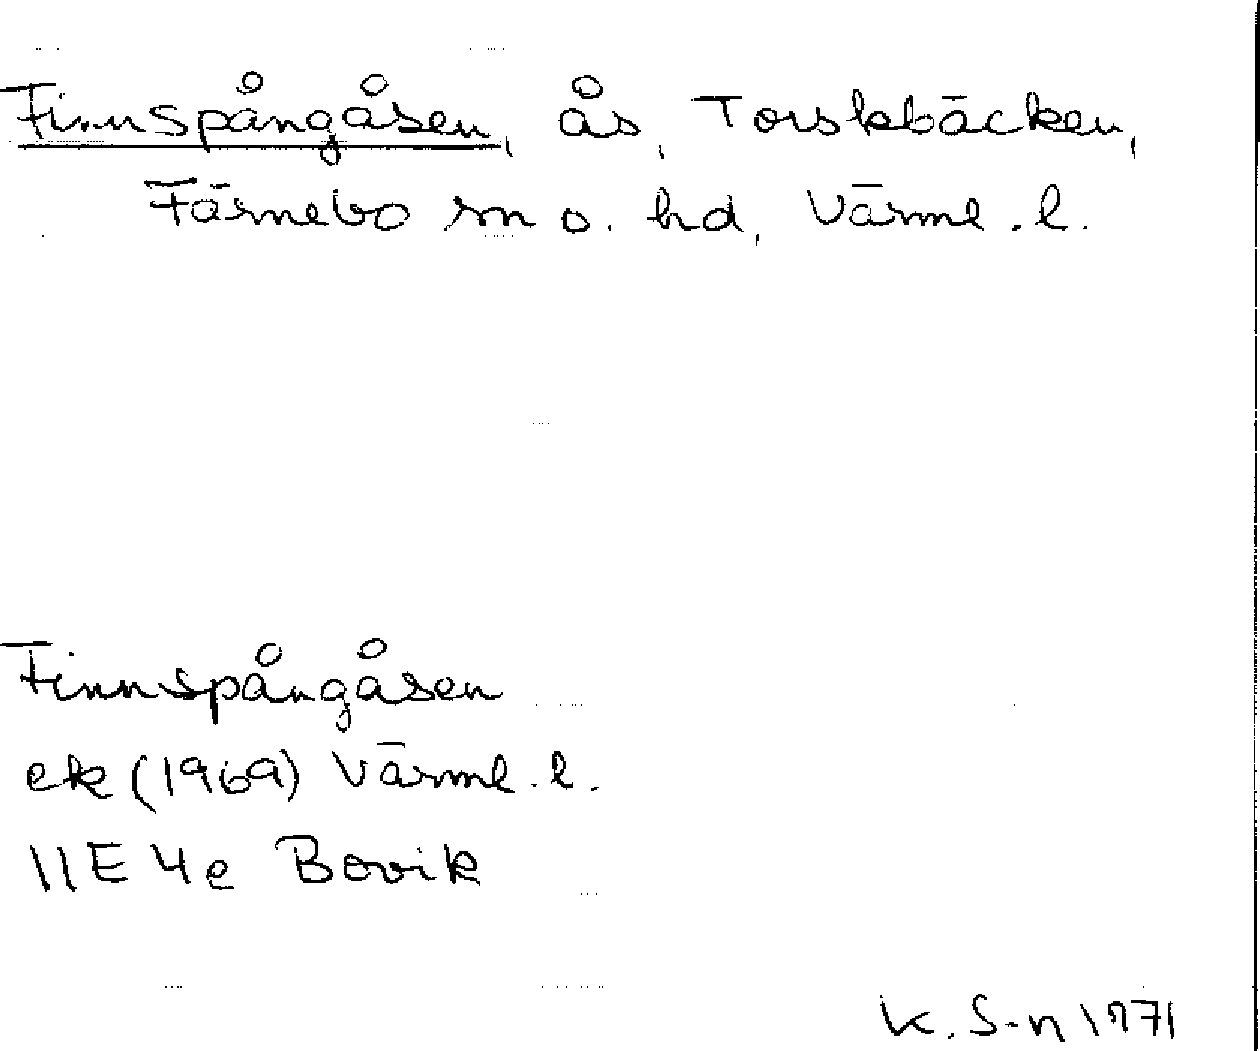 Finnspångåsen, ås, Torskbäcken,
Färnebo sn o. hd, Värml. l.
Finnspångåsen
ek (1969) Värml. l.
11E 4e Bovik
K. S-n 1971